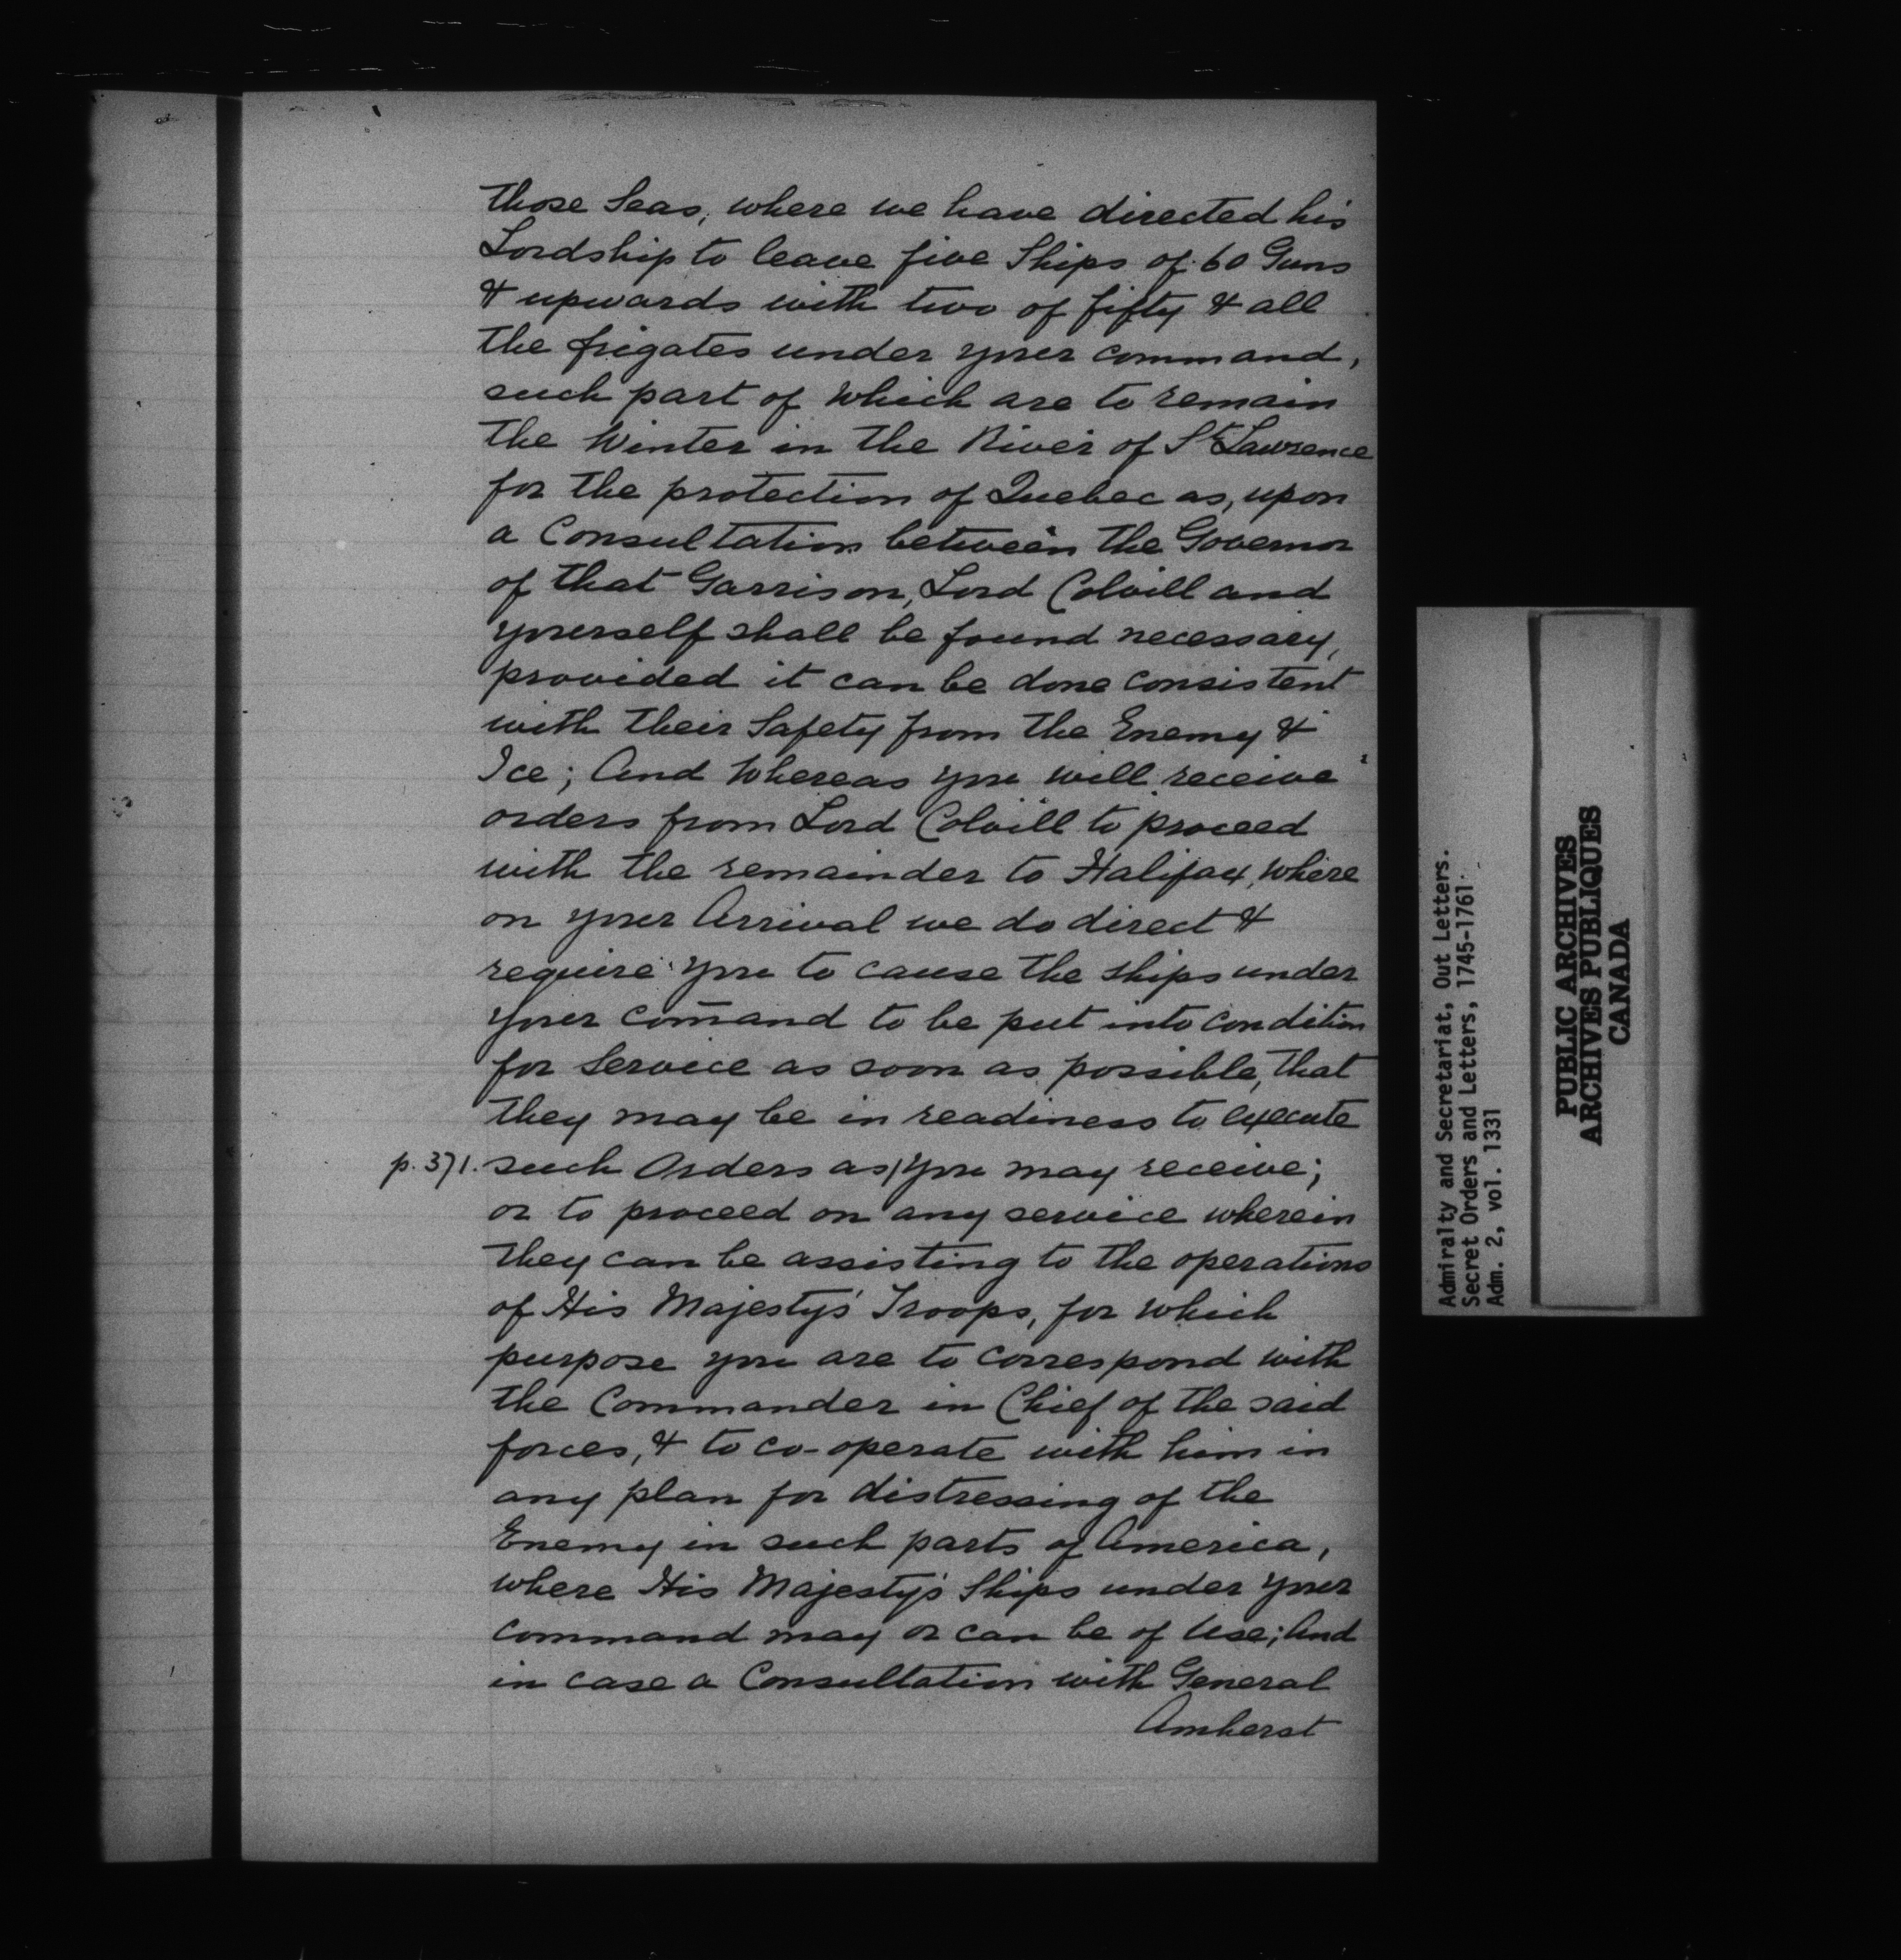 those Seas, where we have directed his
Lordship to leave five Ships of 60 Guns
& upwards with two of fifty & all
the frigates under your command,
such part of which are to remain
the Winter in the River of St Lawrence
for the protection of Quebec as, upon
a Consultation between the Governor
of that Garrison, Lord Colvill and
yourself shall be found necessary,
provided it can be done consistent
with their Safety from the Enemy &
Ice; And Whereas you will receive
orders from Lord Colvill to proceed
with the remainder to Halifax, where
on your Arrival we do direct &
require you to cause the ships under
your com̄and to be put into condition
for Service as soon as possible, that
they may be in readiness to execute
p. 371. such Orders as/you may receive;
or to proceed on any service wherein
they can be assisting to the operations
of His Majesty's Troops, for which
purpose you are to correspond with
the Commander in Chief of the said
forces, & to co-operate with him in
any plan for distressing of the
Enemy in such parts of America,
where His Majesty's Ships under your
command may or can be of Use; And
in case a Consultation with General
Amherst
Admiralty and Secretariat, Out Letters.
Secret Orders and Letters, 1745-1761
Adm. 2, vol. 1331
PUBLIC ARCHIVES
ARCHIVES PUBLIQUES
CANADA